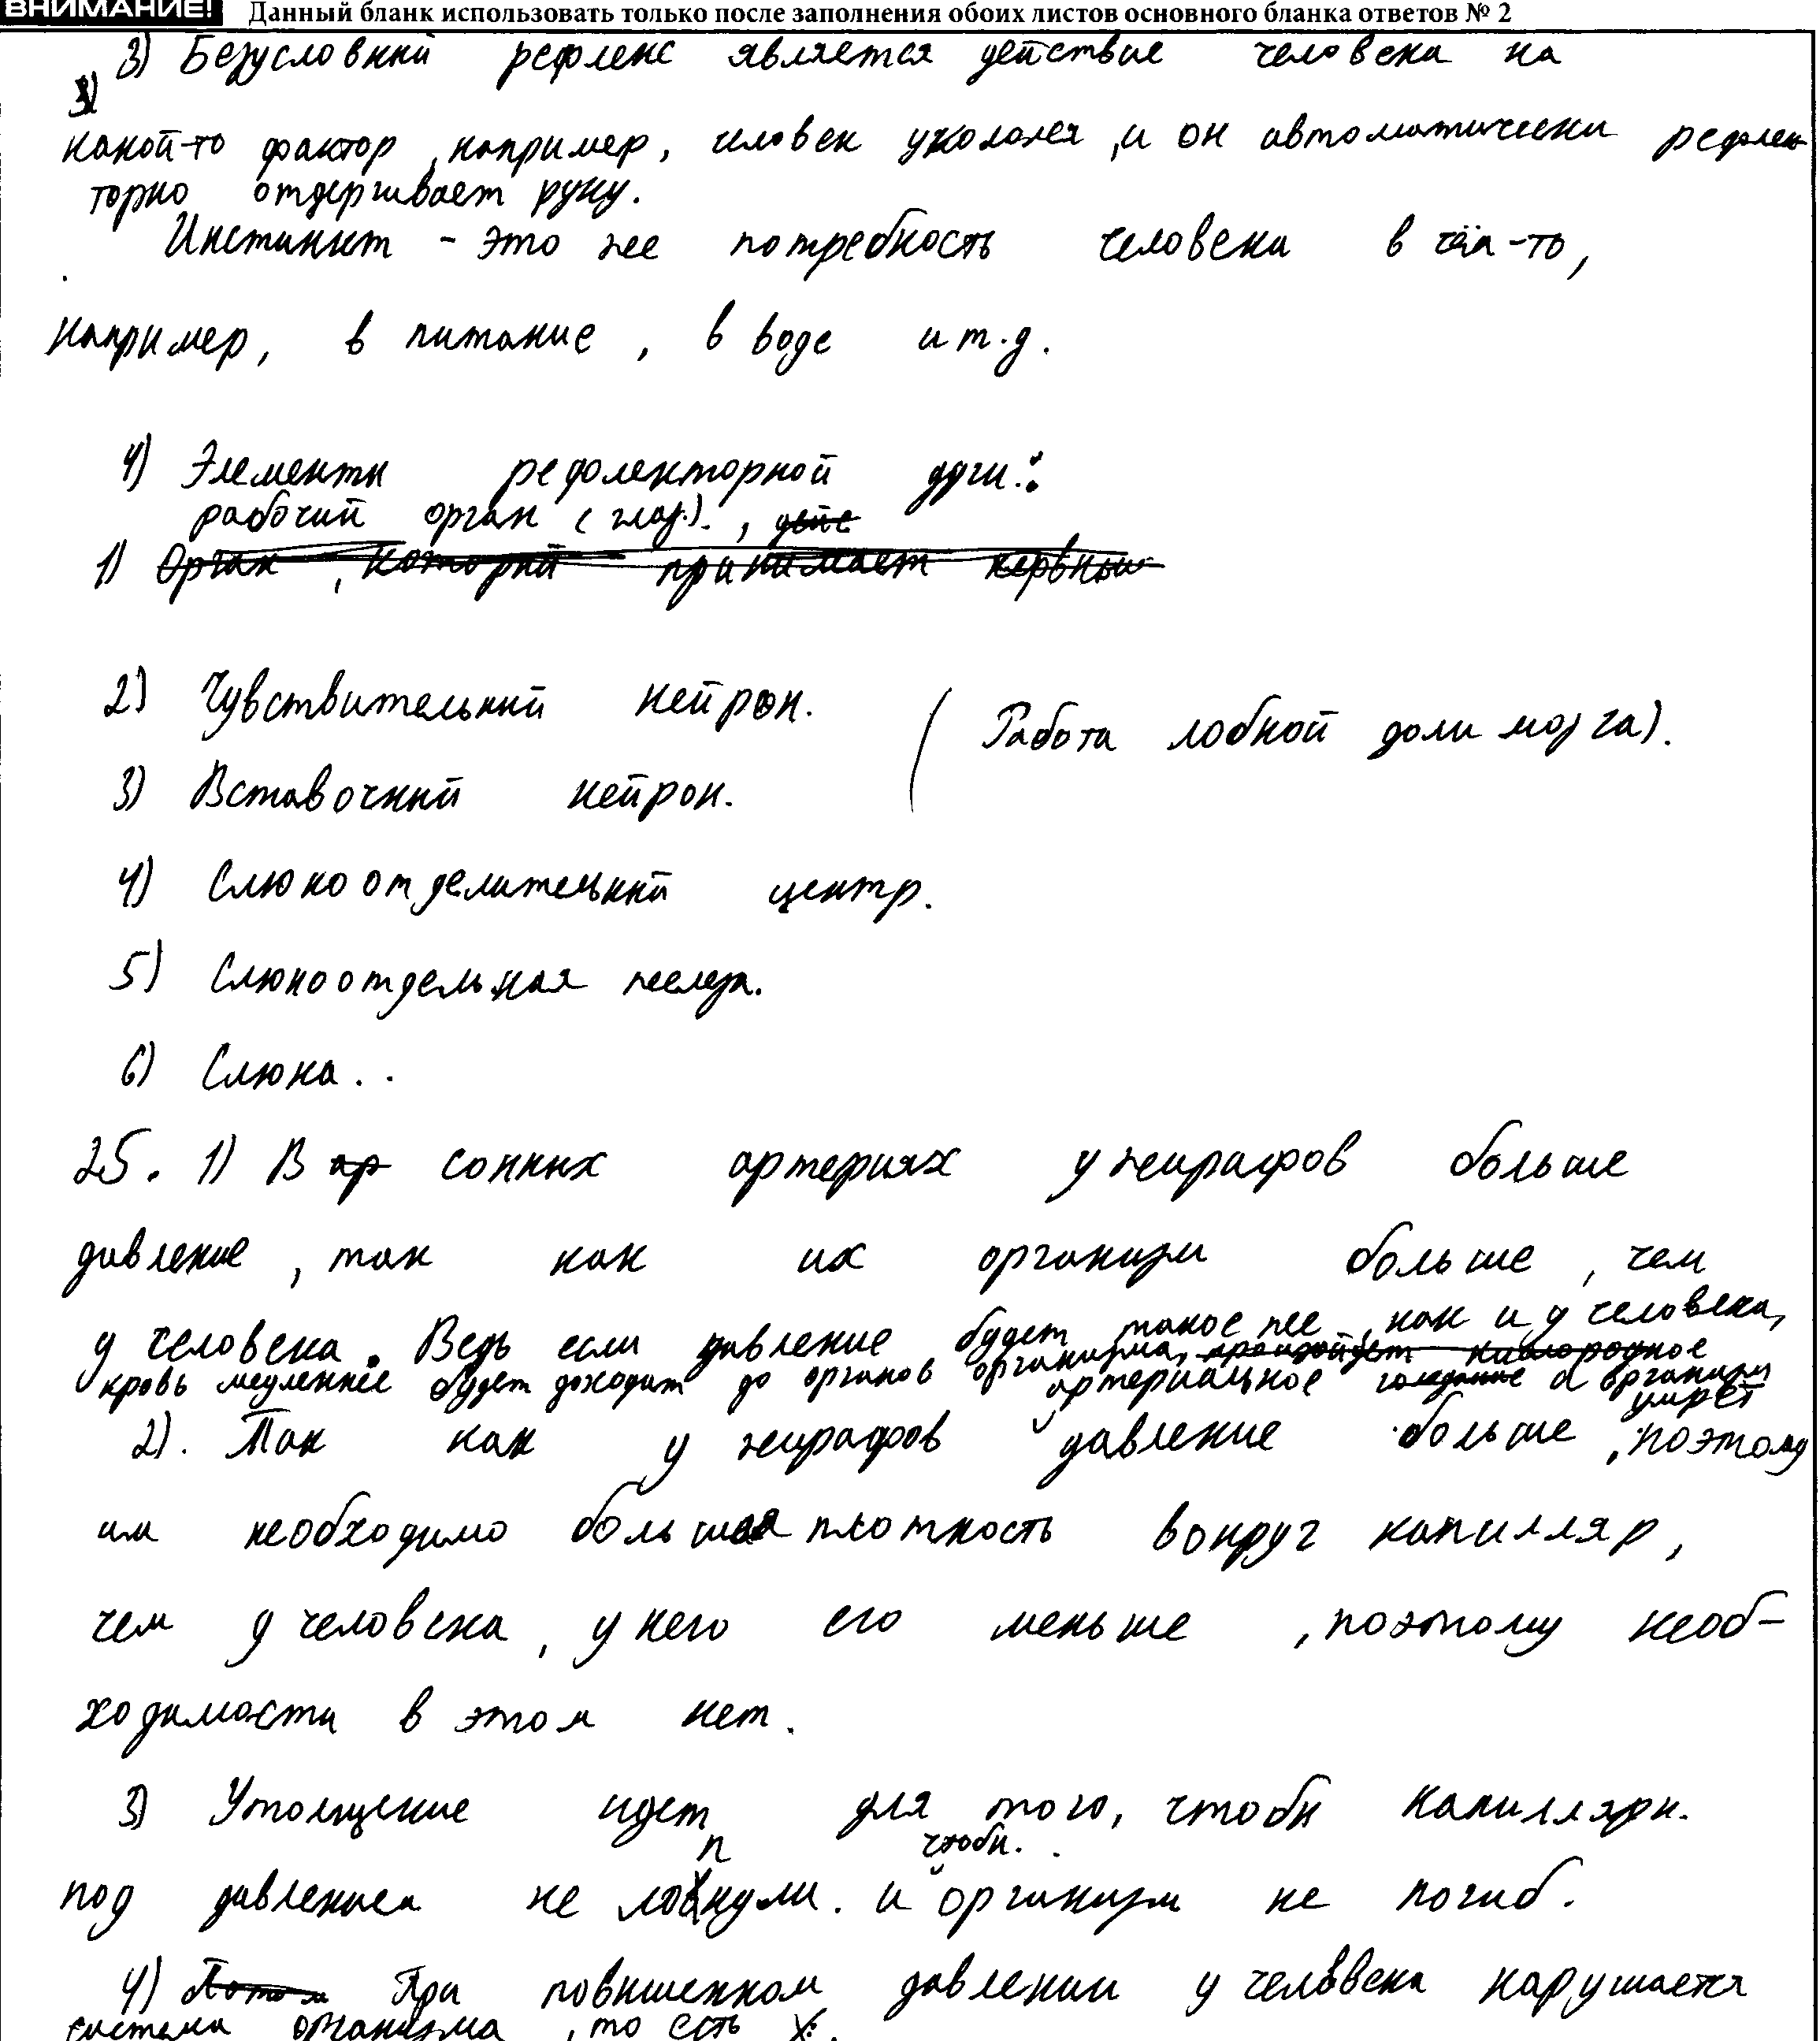 ВНИМАНИЕ! Данный бланк использовать только после заполнения обоих листов основного бланка ответов № 2
3) Безусловный рефлекс является действие человека на
какой-то фактор, например, человек укололся, и он автоматически рефлек
торно отдергивает руку.
Инстинкт - это же потребность человека в чём-то,
например, в питание, в воде и т.д.
4) Элементы рефлекторной дуги:
рабочий орган (глаз)., дейс
1) Орган, который принимает нервный
2) Чувствительный нейрон.
(Работа лобной доли мозга).
3) Вставочный нейрон.
4) Слюноотделительный центр.
5) Слюноотдельная железа.
6) Слюна..
25. 1) В ар сонных артериях у жирафов больше
давление, так как их организм больше, чем
у человека. Ведь если давление будет такое же, как и у человека,
кровь медленнее будет доходит до органов организма, произойдет кислородное
голодание и организм умрёт
2). Так как у жирафов артериальное давление больше, поэтому
им необходимо большая плотность вокруг капилляр,
чем у человека, у него его меньше, поэтому необ-
ходимости в этом нет.
3) Утолщение идет для того, чтобы капилляры.
под давлением не лопнули. и чтобы. организм не погиб.
4) Потом При повышенном давлении у человека нарушается
система организма, то есть